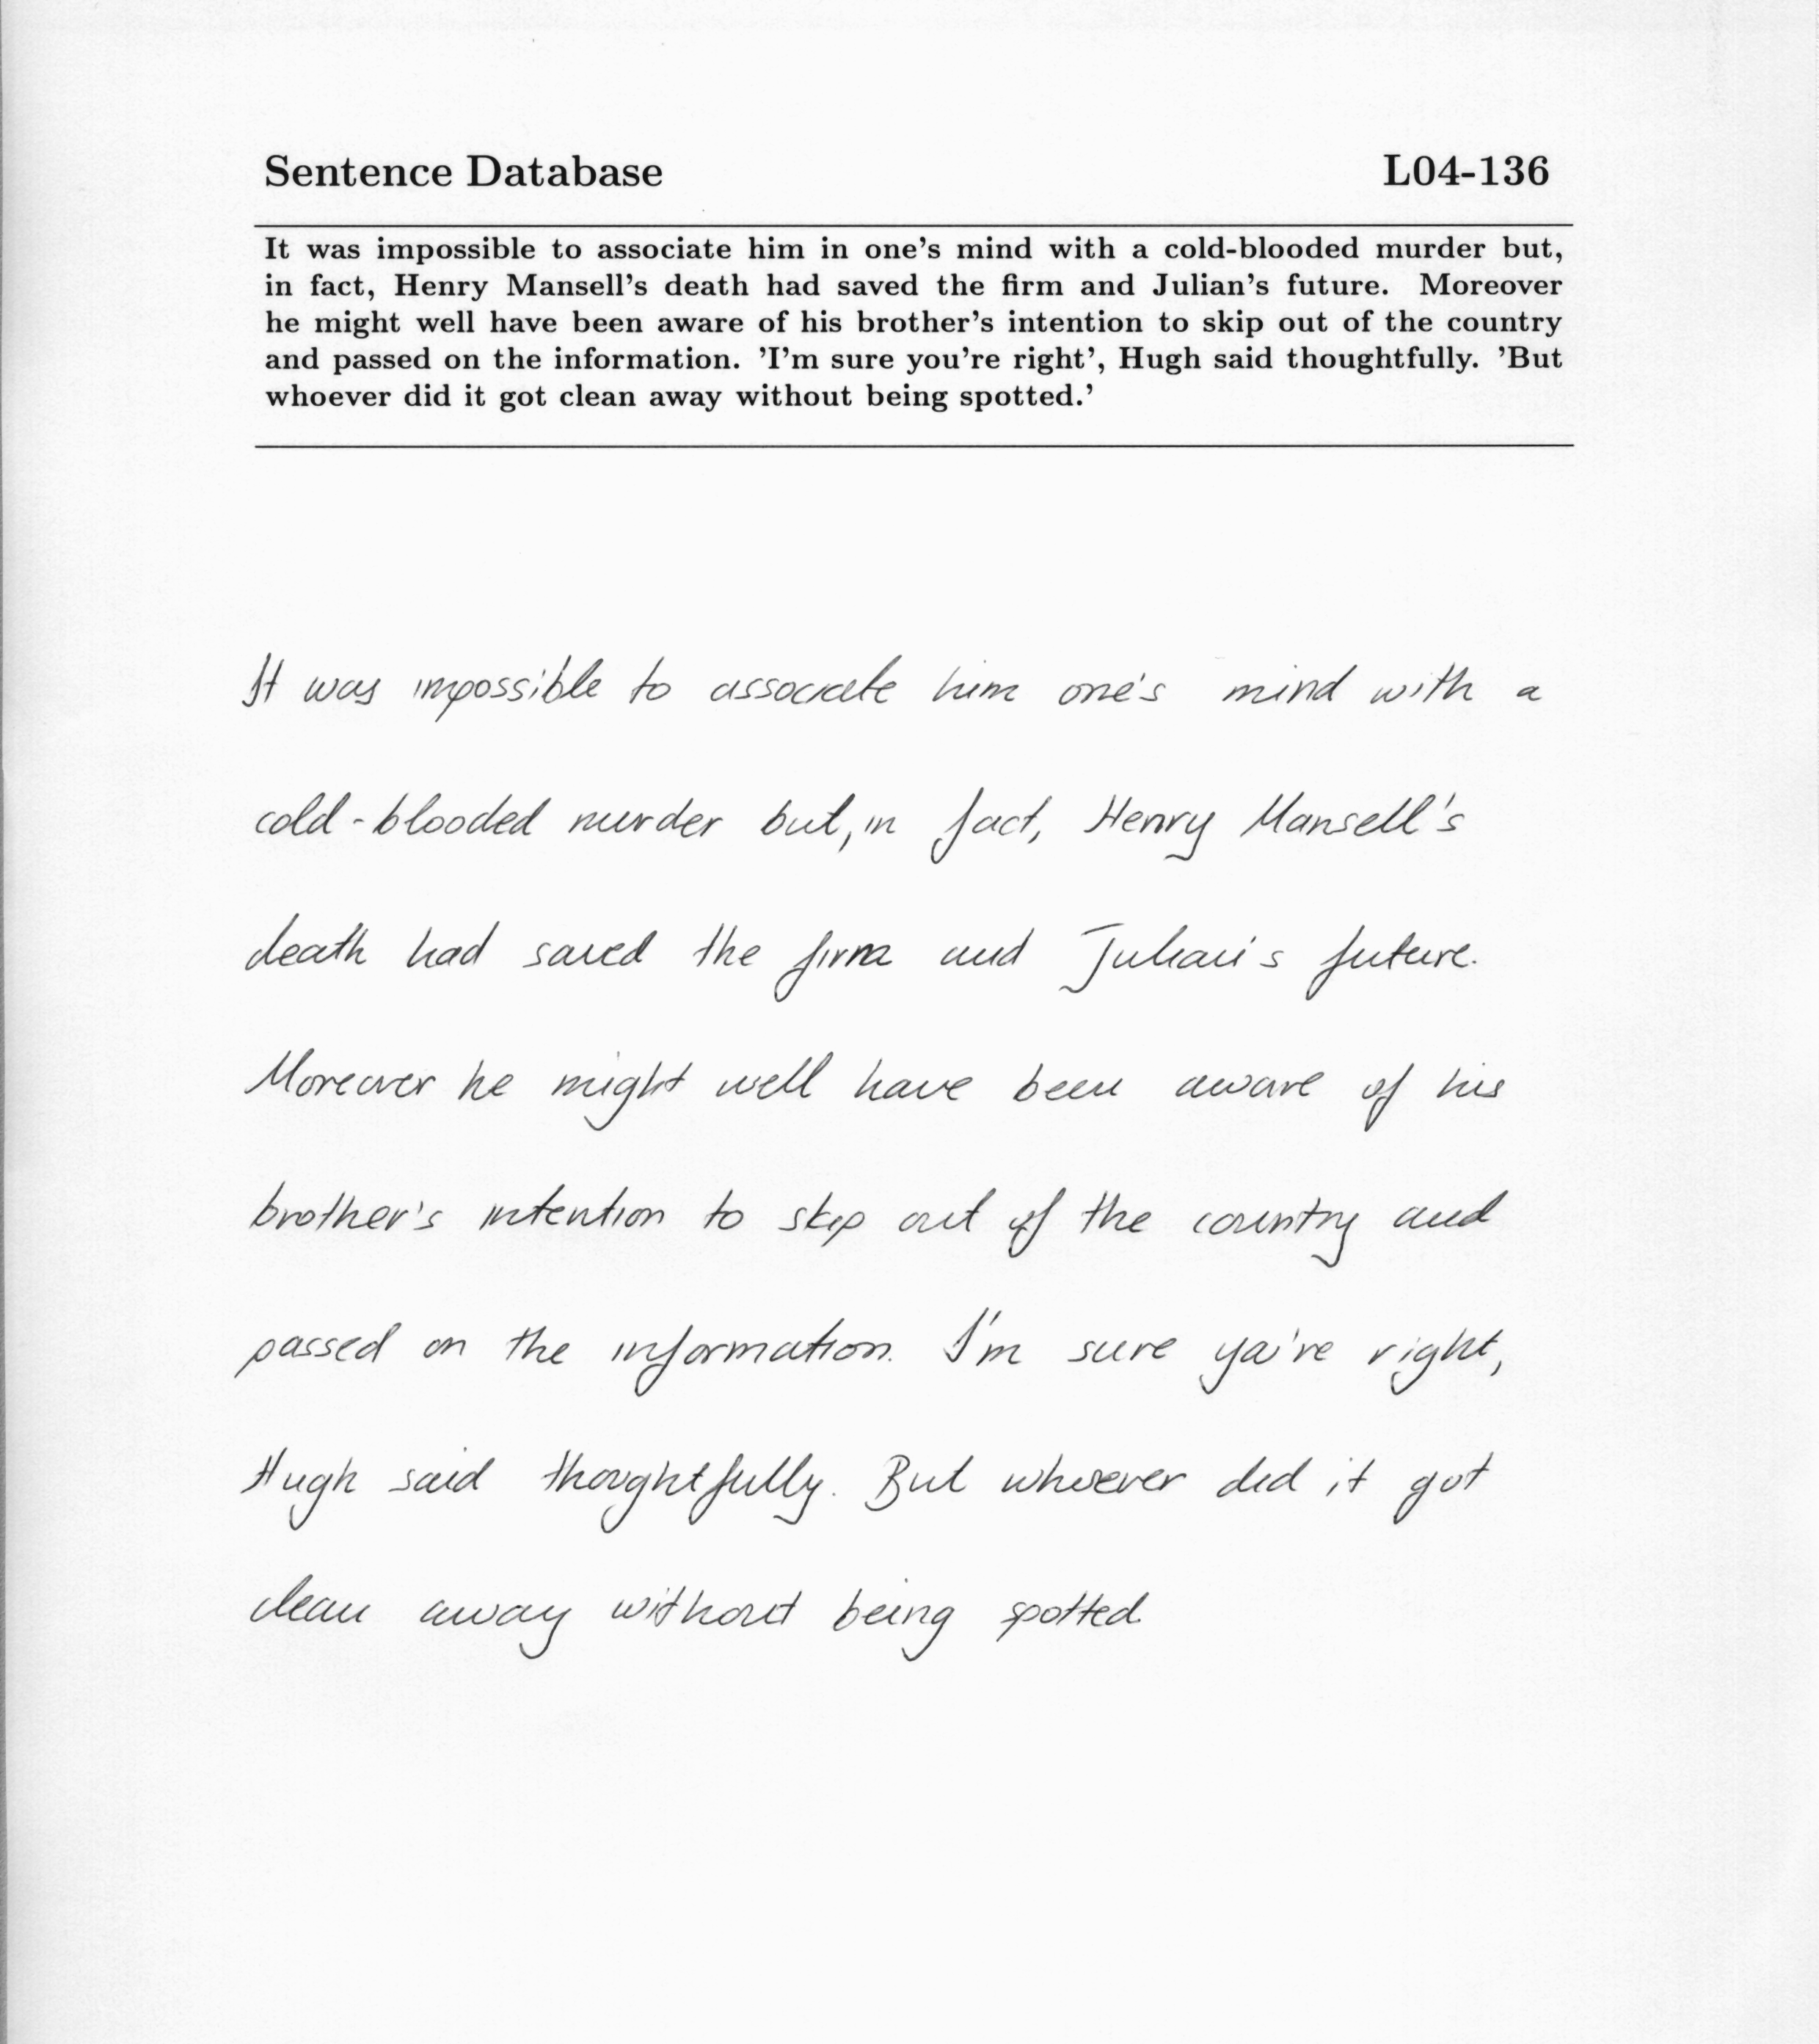 Sentence Database L04-136
It was impossible to associate him in one's mind with a cold-blooded murder but,
in fact, Henry Mansell's death had saved the firm and Julian's future. Moreover
he might well have been aware of his brother's intention to skip out of the country
and passed on the information. 'I'm sure you're right', Hugh said thoughtfully. 'But
whoever did it got clean away without being spotted.'
It was impossible to associate him one's mind with a
cold-blooded murder but, in fact, Henry Mansell's
death had saved the firm and Julian's future.
Moreover he might well have been aware of his
brother's intention to skip out of the country and
passed on the information. I'm sure you're right,
Hugh said thoughtfully. But whoever did it got
clean away without being spotted